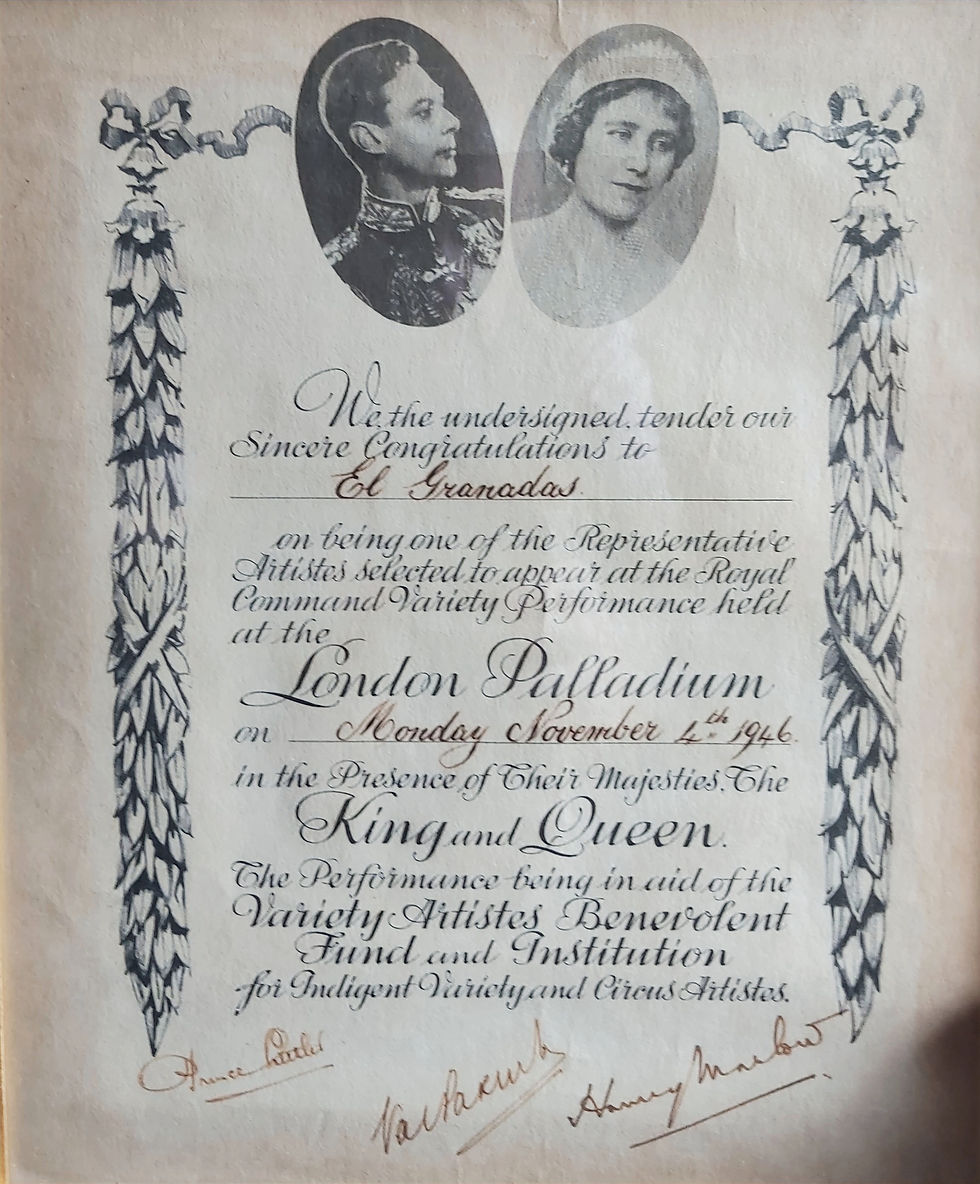 We, the undersigned, tender our
Sincere Congratulations to
El Granadas.
on being one of the Representative
Artistes selected to appear at the Royal
Command Variety Performance held
at the
London Palladium
on Monday November 4th 1946.
in the Presence of Their Majesties, The
King and Queen.
The Performance being in aid of the
Variety Artistes Benevolent
Fund and Institution
for Indigent Variety and Circus Artistes.
Prince Littler
Val Parnell
Harry Marlow